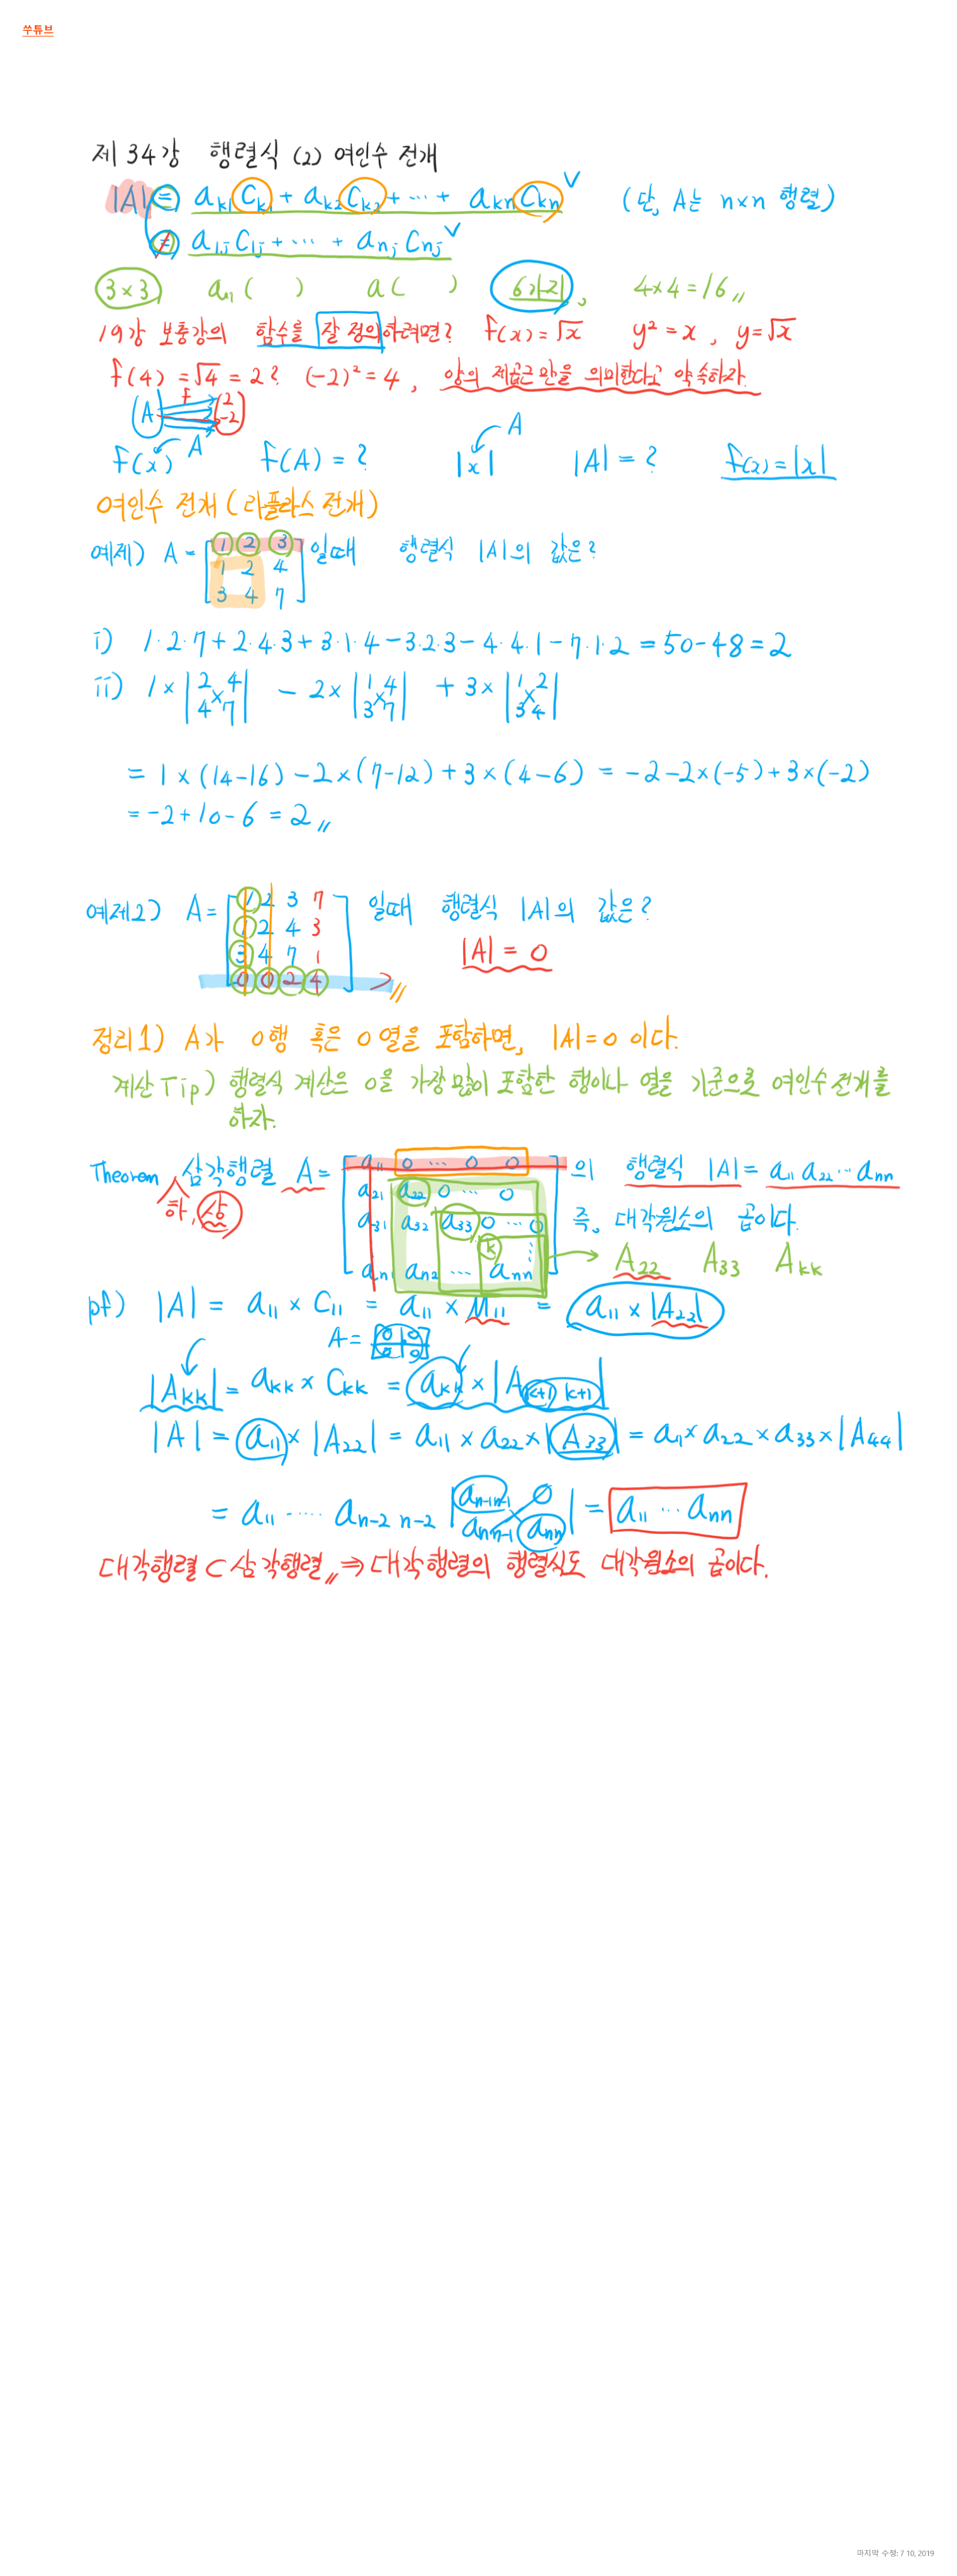 쑤튜브
제 34강 행렬식 (2) 여인수 전개
|A| = a_k1 C_k1 + a_k2 C_k2 + ⋯ + a_kn C_kn ✓ (단, A는 n×n 행렬)
= a_1j C_1j + ⋯ + a_nj C_nj ✓
3×3 a_11 ( ) a ( ) 6가지, 4×4=16〃
19강 보통강의 함수를 잘 정의하려면? f(x)=√x y²=x, y=√x
f(4)=√4=2? (-2)²=4, 양의 제곱근만을 의미한다고 약속하자.
A f 2 -2
f(x) A f(A)=? |x| A |A|=? f(x)=|x|
여인수 전개 (라플라스 전개)
예제) A = [1 2 3 일때 행렬식 |A|의 값은?
1 2 4
3 4 7]
i) 1·2·7+2·4·3+3·1·4-3·2·3-4·4·1-7·1·2 = 50-48 = 2
ii) 1×|2 4 - 2×|1 4 + 3×|1 2
4 7| 3 7| 3 4|
= 1×(14-16)-2×(7-12)+3×(4-6) = -2-2×(-5)+3×(-2)
= -2+10-6 = 2〃
예제2) A = [1 2 3 7 일때 행렬식 |A|의 값은?
1 2 4 3
3 4 7 1 |A| = 0
0 0 2 4]
정리1) A가 0행 혹은 0열을 포함하면, |A|=0 이다.
계산Tip) 행렬식 계산은 0을 가장 많이 포함한 행이나 열을 기준으로 여인수 전개를
하자.
Theorem 삼각행렬 A = [a_11 0 ⋯ 0 0 의 행렬식 |A| = a_11 a_22 ⋯ a_nn
하, 상 a_21 a_22 0 ⋯ 0
a_31 a_32 a_33 0 ⋯ 0 즉, 대각원소의 곱이다.
k ⋮ → A_22 A_33 A_kk
a_n1 a_n2 ⋯ a_nn]
pf) |A| = a_11 × C_11 = a_11 × M_11 = a_11 × |A_22|
|A_kk| = a_kk × C_kk = a_kk × |A_k+1 k+1|
|A| = a_11 × |A_22| = a_11 × a_22 × |A_33| = a_11 × a_22 × a_33 × |A_44|
= a_11 ⋯⋯ a_n-2 n-2 |a_n-1 n-1 0 = a_11 ⋯ a_nn
a_n n-1 a_nn|
대각행렬 ⊂ 삼각행렬〃 ⇒ 대각행렬의 행렬식도 대각원소의 곱이다.
마지막 수정: 7 10, 2019